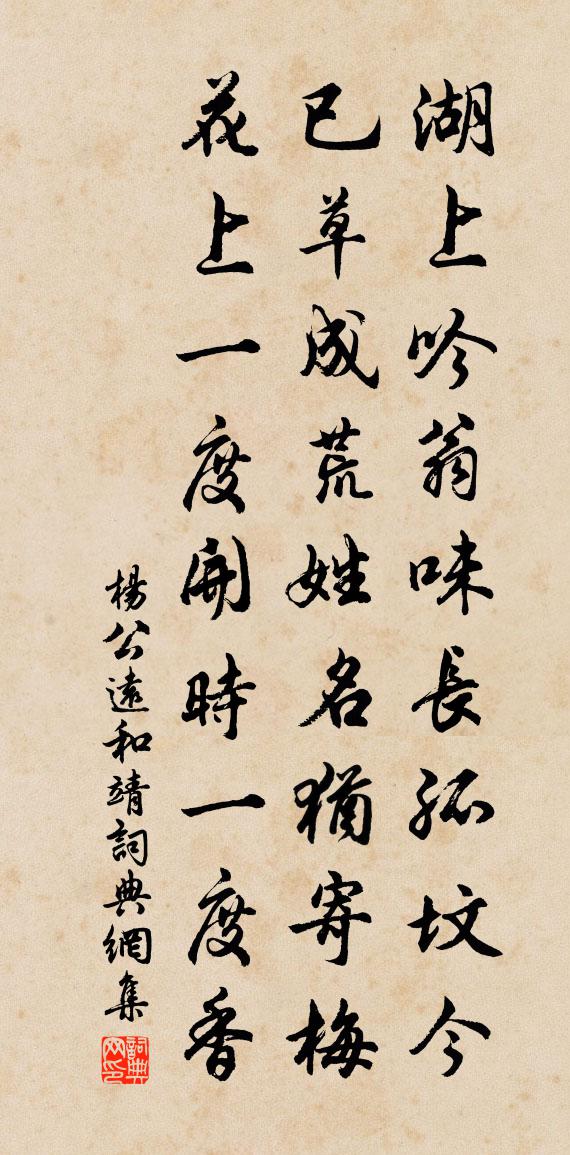 湖上吟翁味長孤坟今
已草成荒姓名猶寄梅
花上一度開時一度香
楊公遠和靖詞典網集
詞典网印